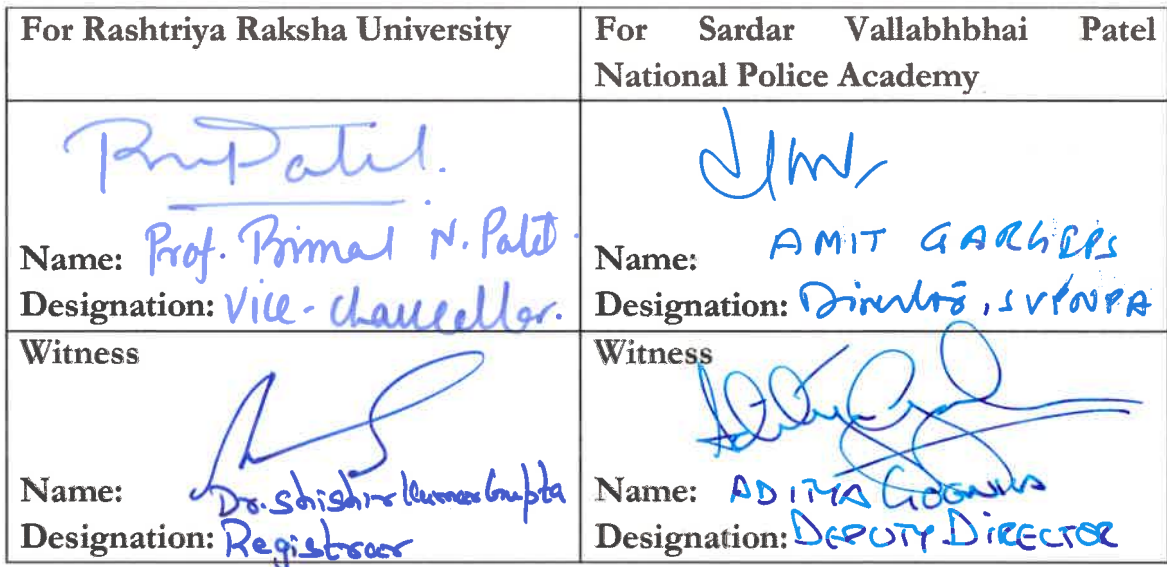 For Rashtriya Raksha University
For Sardar Vallabhbhai Patel
National Police Academy
Name: Prof. Bimal N. Patel.
Designation: Vice-Chancellor.
Name: AMIT GARG IPS
Designation: Director, SVPNPA
Witness
Name: Dr. Shishir Kumar Gupta
Designation: Registrar
Witness
Name: ADITYA
Designation: DEPUTY DIRECTOR